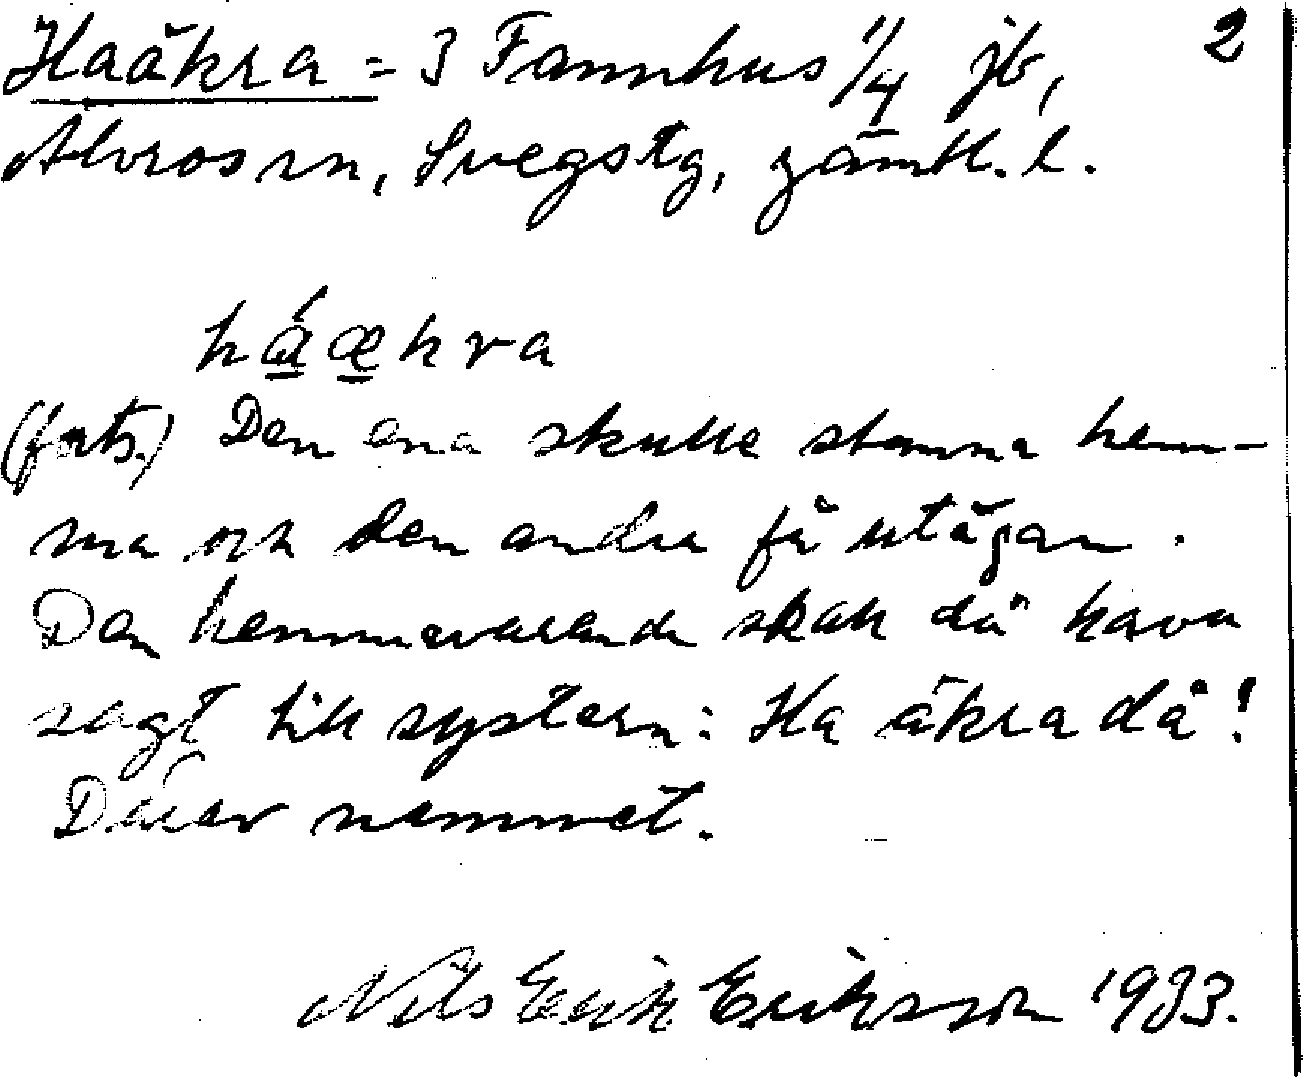 Haåkra = 3 Fannhus 1/4 jb, 2
Älvros sn, Svegs tg, Jämtl. l.
håækra
(forts.) Den ena skulle stanna hem-
ma och den andra få utägan.
Den hemmavarande skall då hava
sagt till systern: Ha åkra då!
Därav namnet.
Nils Erik Eriksson 1933.